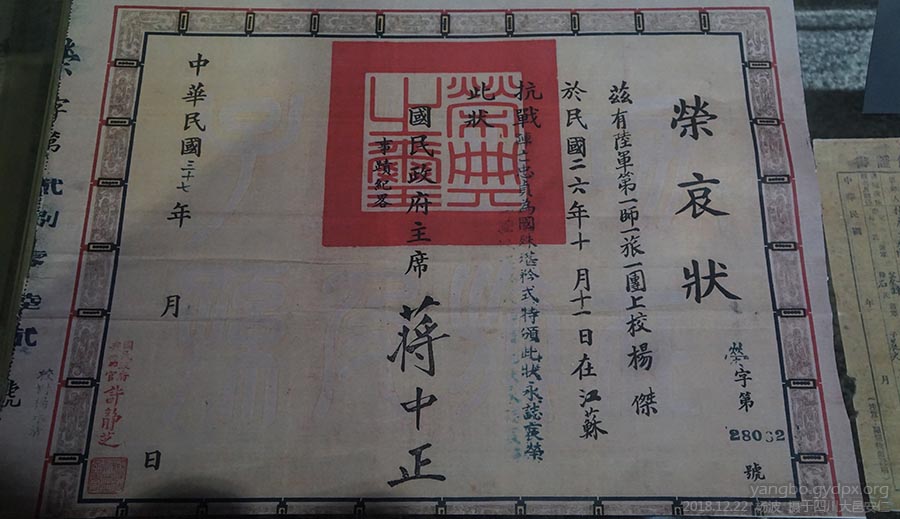 榮哀狀
榮字第
28032
號
茲有陸軍第一師一旅一團上校楊傑
於民國二六年十月十一日在江蘇
抗戰陣亡忠貞為國殊堪矜式特頒此狀永誌哀榮
此狀
事蹟紀畧
國民政府主席蔣中正
榮典之璽
中華民國三十七年月日
許靜芝
榮字第
號
中華民國
年
月
yangbo.gydpx.org
2018.12.22 杨波 摄于四川大邑安仁